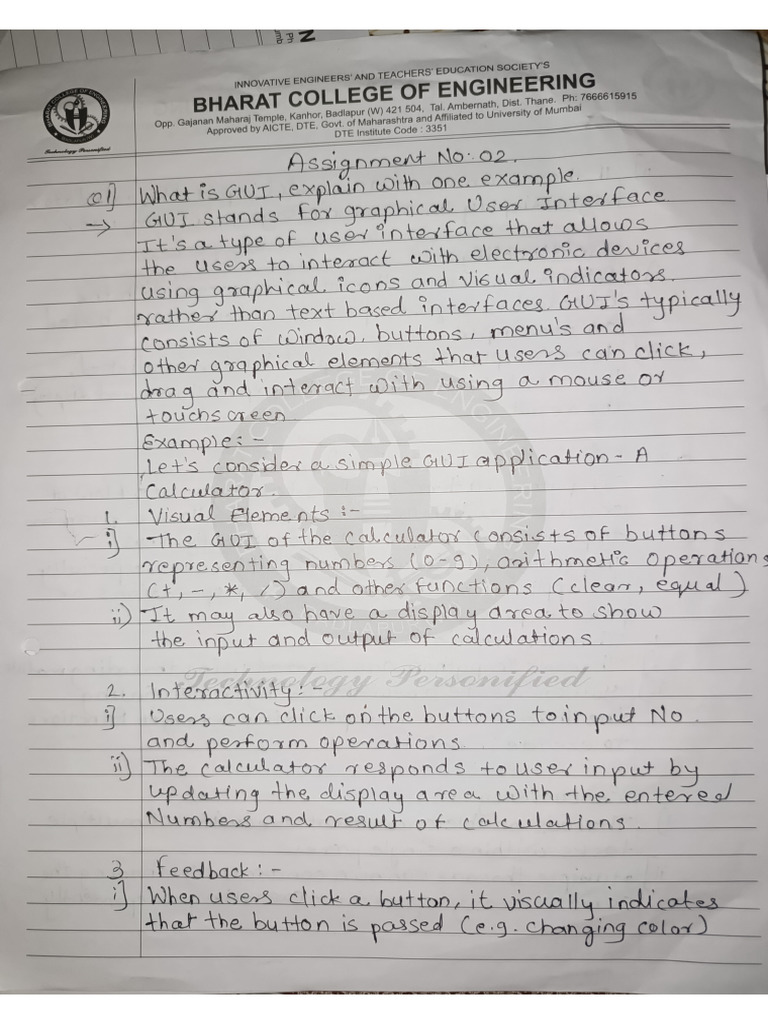 INNOVATIVE ENGINEERS' AND TEACHERS' EDUCATION SOCIETY'S
BHARAT COLLEGE OF ENGINEERING
Opp. Gajanan Maharaj Temple, Kanhor, Badlapur (W) 421 504, Tal. Ambernath, Dist. Thane. Ph: 7666615915
Approved by AICTE, DTE, Govt. of Maharashtra and Affiliated to University of Mumbai
DTE Institute Code : 3351
Technology Personified
Assignment No: 02.
Q1] What is GUI, explain with one example.
→ GUI stands for graphical User Interface
It's a type of user interface that allows
the users to interact with electronic devices
using graphical icons and visual indicators.
rather than text based interfaces. GUI's typically
consists of window, buttons, menu's and
other graphical elements that users can click,
drag and interact with using a mouse or
touchscreen
Example: -
Let's consider a simple GUI application - A
Calculator.
1. Visual Elements :-
i] The GUI of the calculator consists of buttons
representing numbers (0-9), arithmetic operations
(+, -, *, /) and other functions (clear, equal)
ii) It may also have a display area to show
the input and output of calculations
Technology Personified
2. Interactivity : -
i] Users can click on the buttons to input No.
and perform operations.
ii) The calculator responds to user input by
updating the display area with the entered
Numbers and result of calculations.
3 Feedback : -
i] When users click a button, it visually indicates
that the button is passed (e.g. changing color)